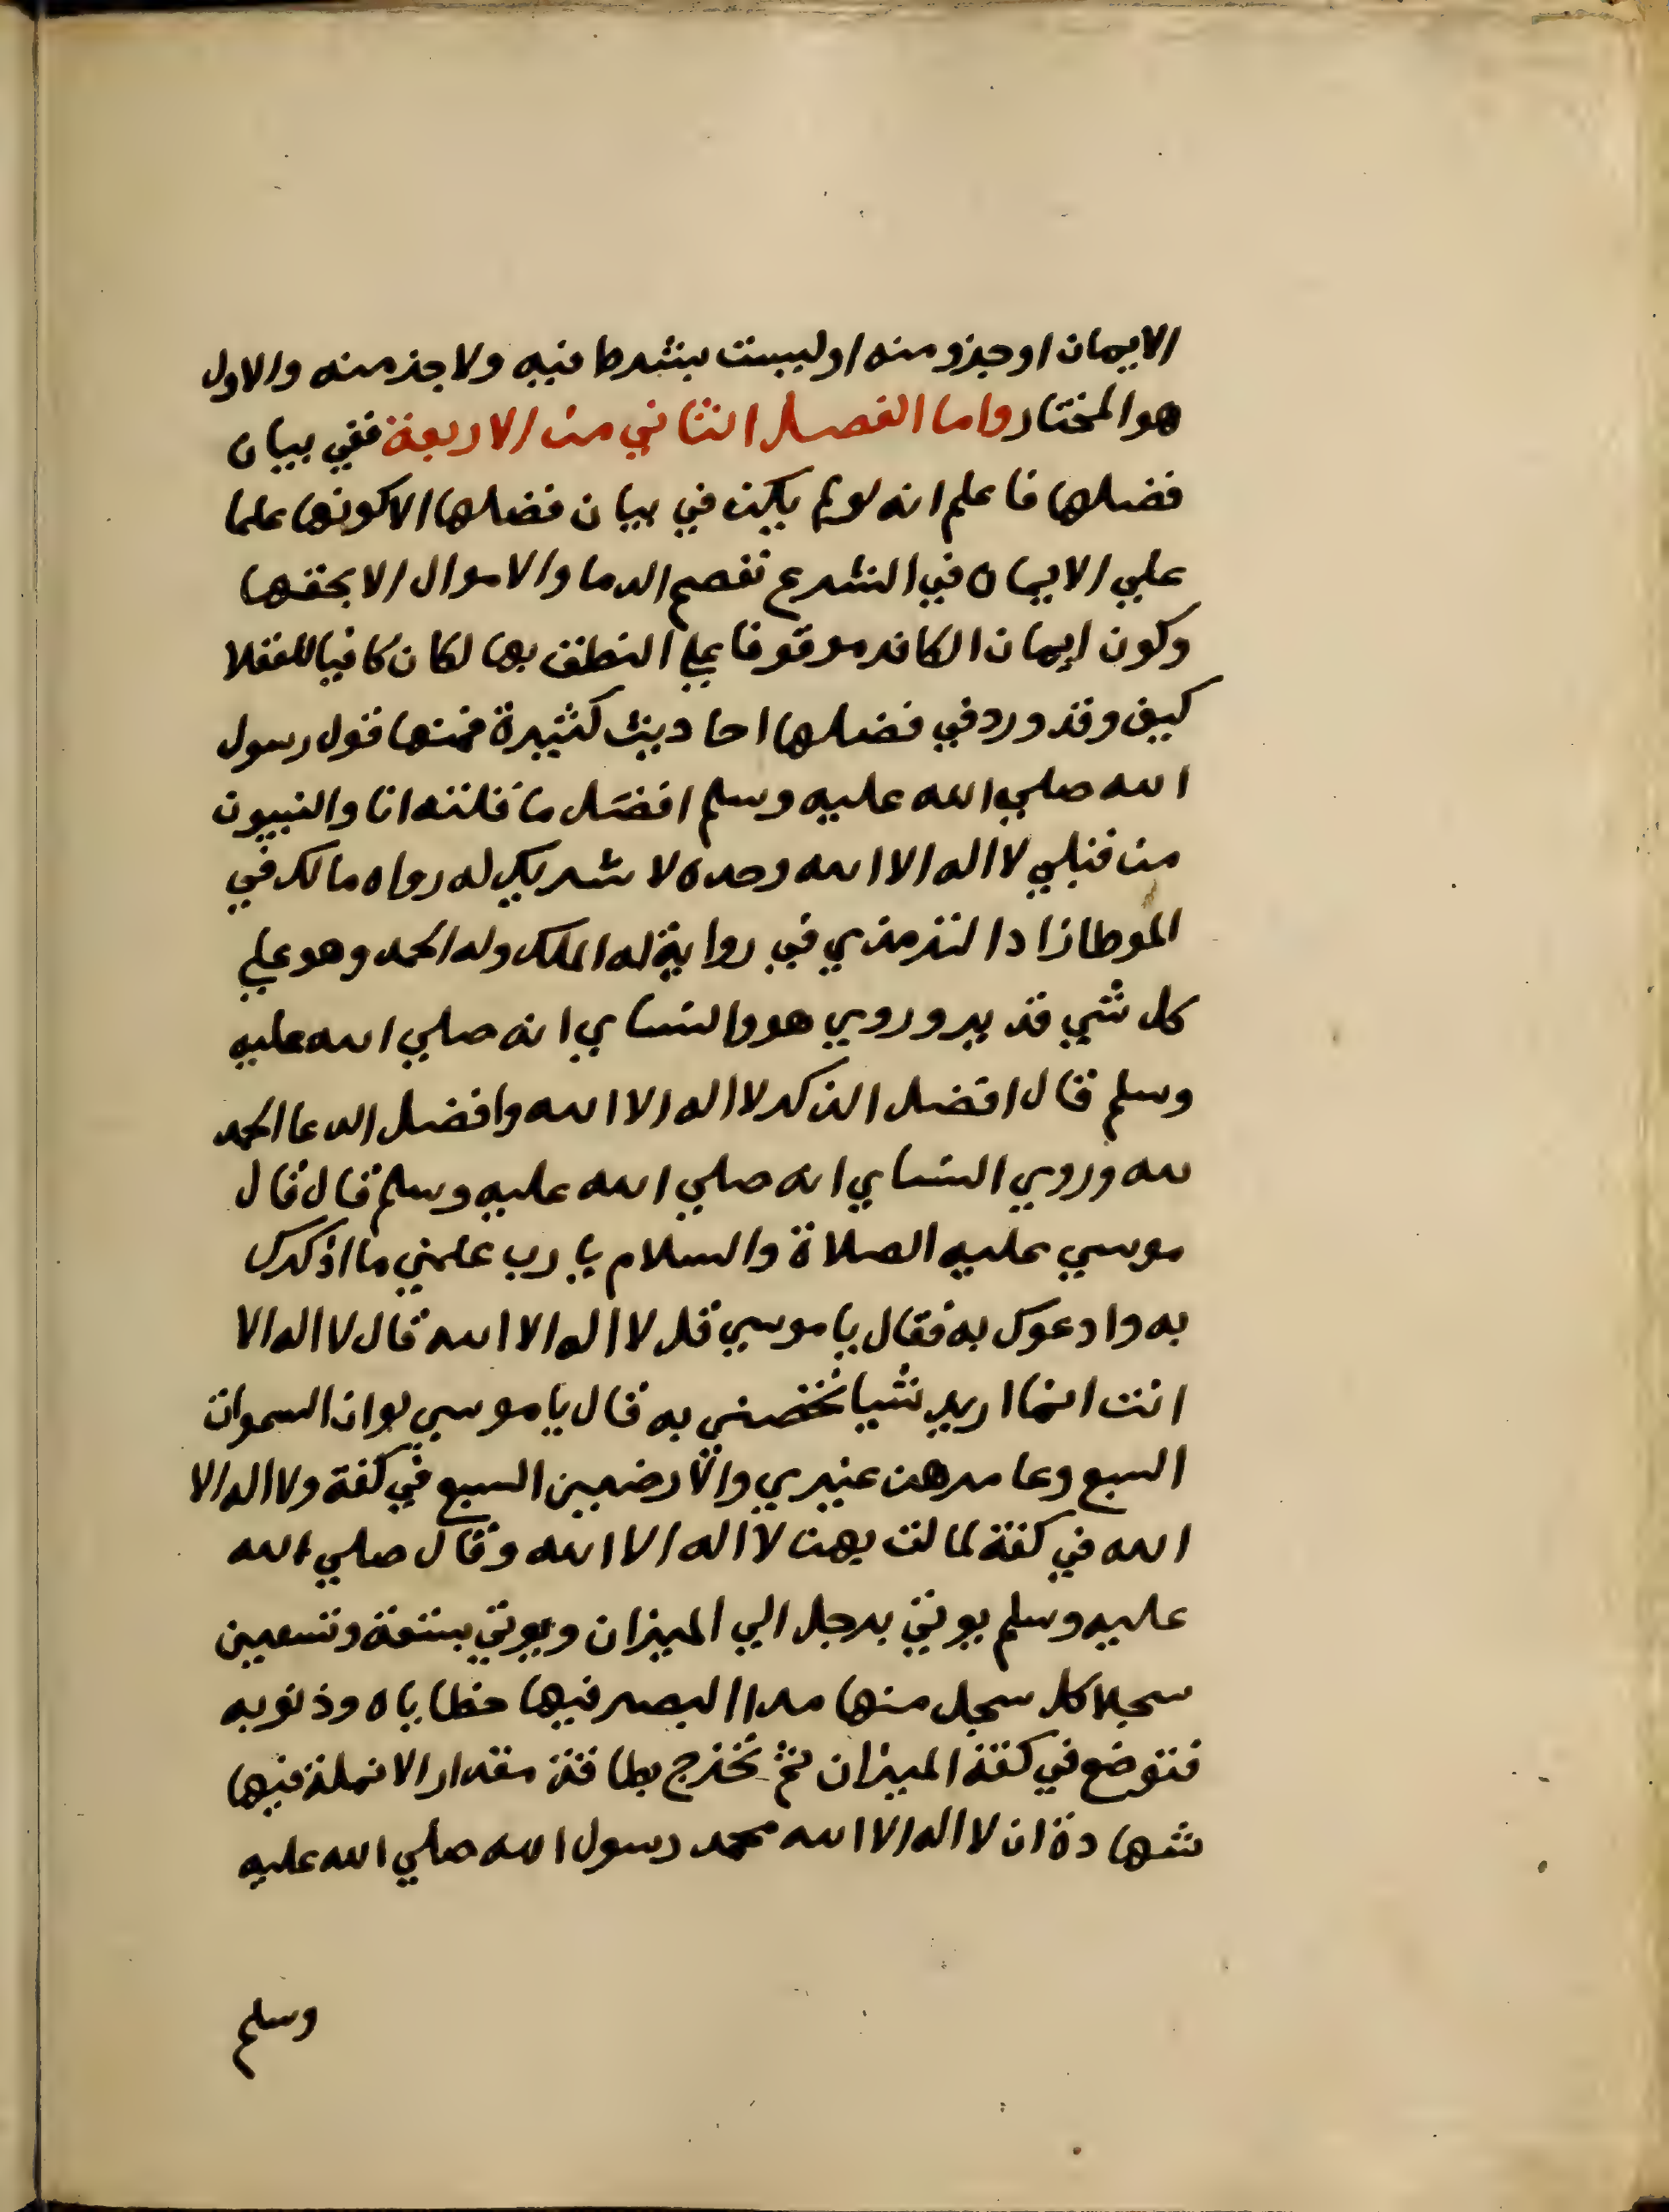 الايمان او جزو منه او ليست بشرط فيه ولا جز منه والاول
هو المختار واما الفصل الثاني من الاربعة ففي بيان
فضلها فاعلم انه لو لم يكن في بيان فضلها الا كونها علما
علي الايمان في الشرع تعصم الدما والاموال الا بحقها
وكون ايمان الكافر موقوفا علي النطق بها لكان كافيا للعقلا
كيف وقد ورد في فضلها احاديث كثيرة فمنها قول رسول
الله صلي الله عليه وسلم افضل ما قلته انا والنبيون
من قبلي لا اله الا الله وحده لا شريك له رواه مالك في
الموطا زاد الترمذي في رواية له الملك وله الحمد وهو علي
كل شي قدير وروي هو والنساي انه صلي الله عليه
وسلم قال افضل الذكر لا اله الا الله وافضل الدعا الحمد
لله وروي النساي انه صلي الله عليه وسلم قال قال
موسي عليه الصلاة والسلام يا رب علمني ما اذكرك
به وادعوك به فقال يا موسي قل لا اله الا الله قال لا اله الا
انت انما اريد شيا تخصني به قال يا موسي لو ان السموات
السبع وعامرهن غيري والارضين السبع في كفة ولا اله الا
الله في كفة لمالت بهن لا اله الا الله وقال صلي الله
عليه وسلم يوتي برجل الي الميزان ويوتي بتسعة وتسعين
سجلا كل سجل منها مدا البصر فيها خطاياه وذنوبه
فتوضع في كفة الميزان ثم تخرج بطاقة مقدار الانملة فيها
شهادة ان لا اله الا الله محمد رسول الله صلي الله عليه
وسلم